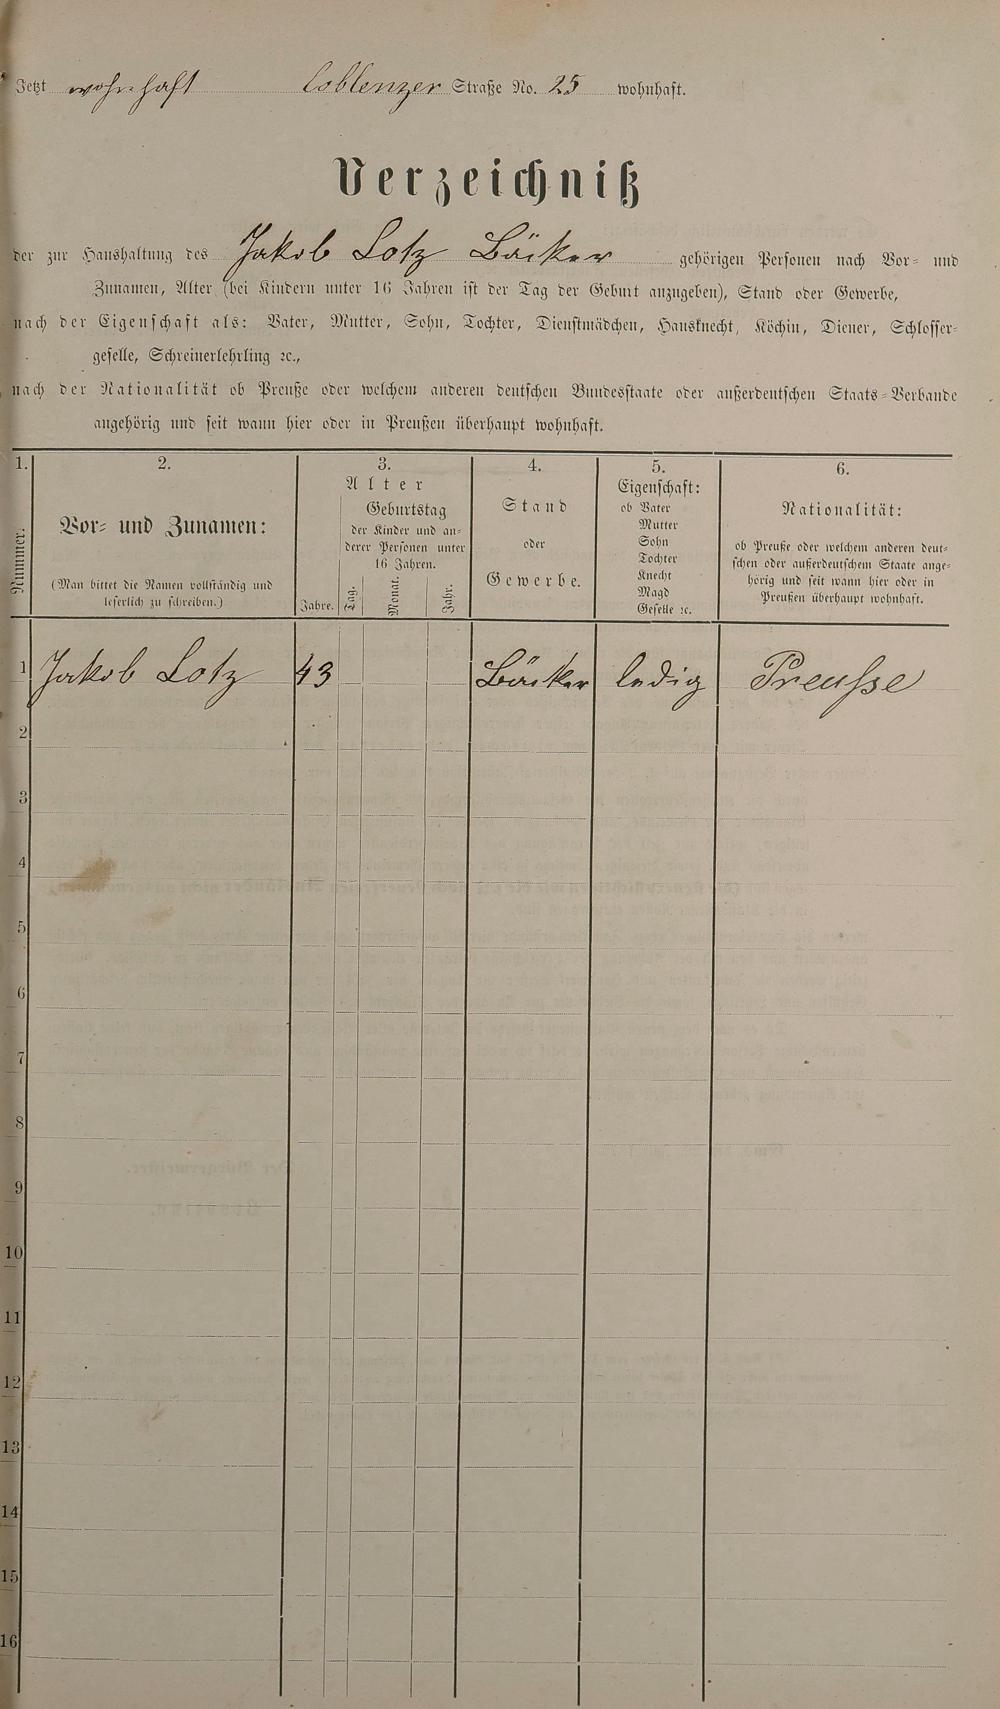 Jetzt wohnhaft Coblenzer Straße No. 25 wohnhaft.
Verzeichniß
der zur Haushaltung des Jakob Lotz Bäcker gehörigen Personen nach Vor- und
Zunamen, Alter (bei Kindern unter 16 Jahren ist der Tag der Geburt anzugeben), Stand oder Gewerbe,
nach der Eigenschaft als: Vater, Mutter, Sohn, Tochter, Dienstmädchen, Hausknecht, Köchin, Diener, Schlosser-
geselle, Schreinerlehrling ꝛc.,
nach der Nationalität ob Preuße oder welchem anderen deutschen Bundesstaate oder außerdeutschen Staats-Verbande
angehörig und seit wann hier oder in Preußen überhaupt wohnhaft.
1. 2. 3. 4. 5. 6.
Nummer.
Vor- und Zunamen:
(Man bittet die Namen vollständig und
leserlich zu schreiben.)
Alter
Jahre.
Geburtstag
der Kinder und an-
derer Personen unter
16 Jahren.
Tag. Monat. Jahr.
Stand
oder
Gewerbe.
Eigenschaft:
ob Vater
Mutter
Sohn
Tochter
Knecht
Magd
Geselle ꝛc.
Nationalität:
ob Preuße oder welchem anderen deut-
schen oder außerdeutschem Staate ange-
hörig und seit wann hier oder in
Preußen überhaupt wohnhaft.
1 Jakob Lotz 43 Bäcker ledig Preusse
2
3
4
5
6
7
8
9
10
11
12
13
14
15
16